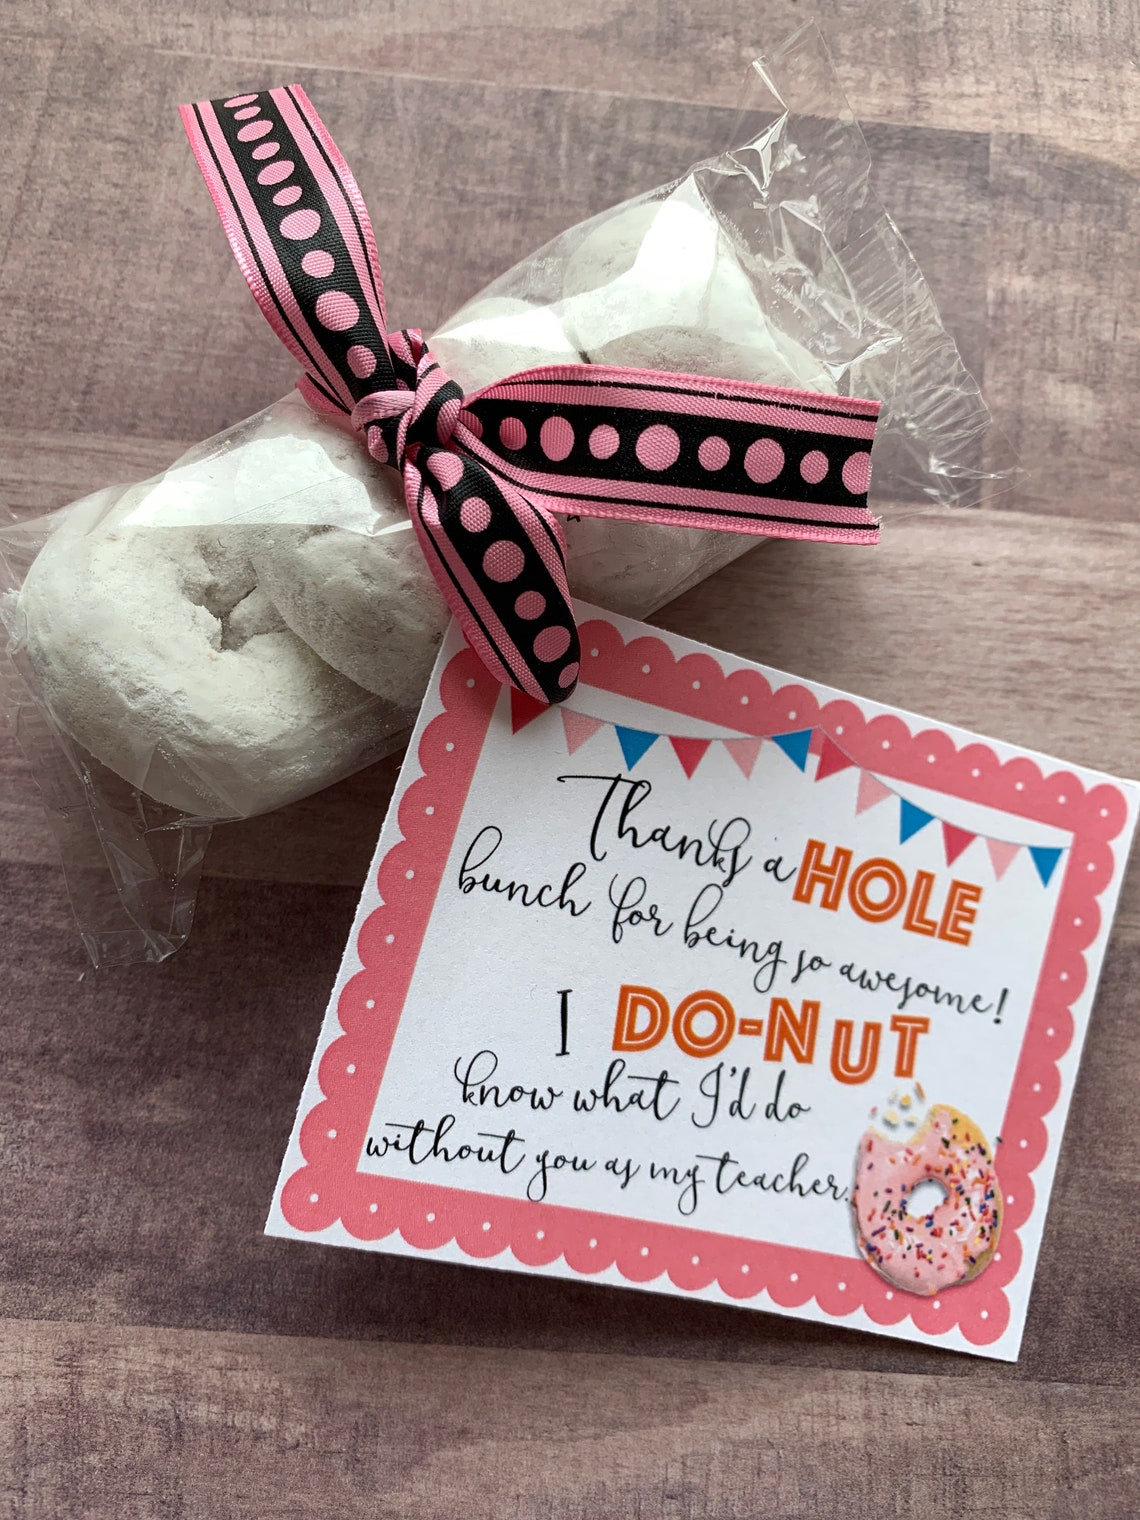 Thanks a HOLE
bunch for being so awesome!
I DO-NUT
know what I'd do
without you as my teacher.